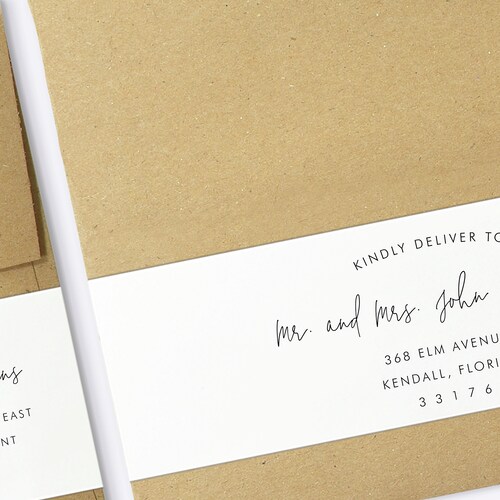 KINDLY DELIVER TO
Mr. and Mrs. John
368 ELM AVENU
KENDALL, FLORI
33176
EAST